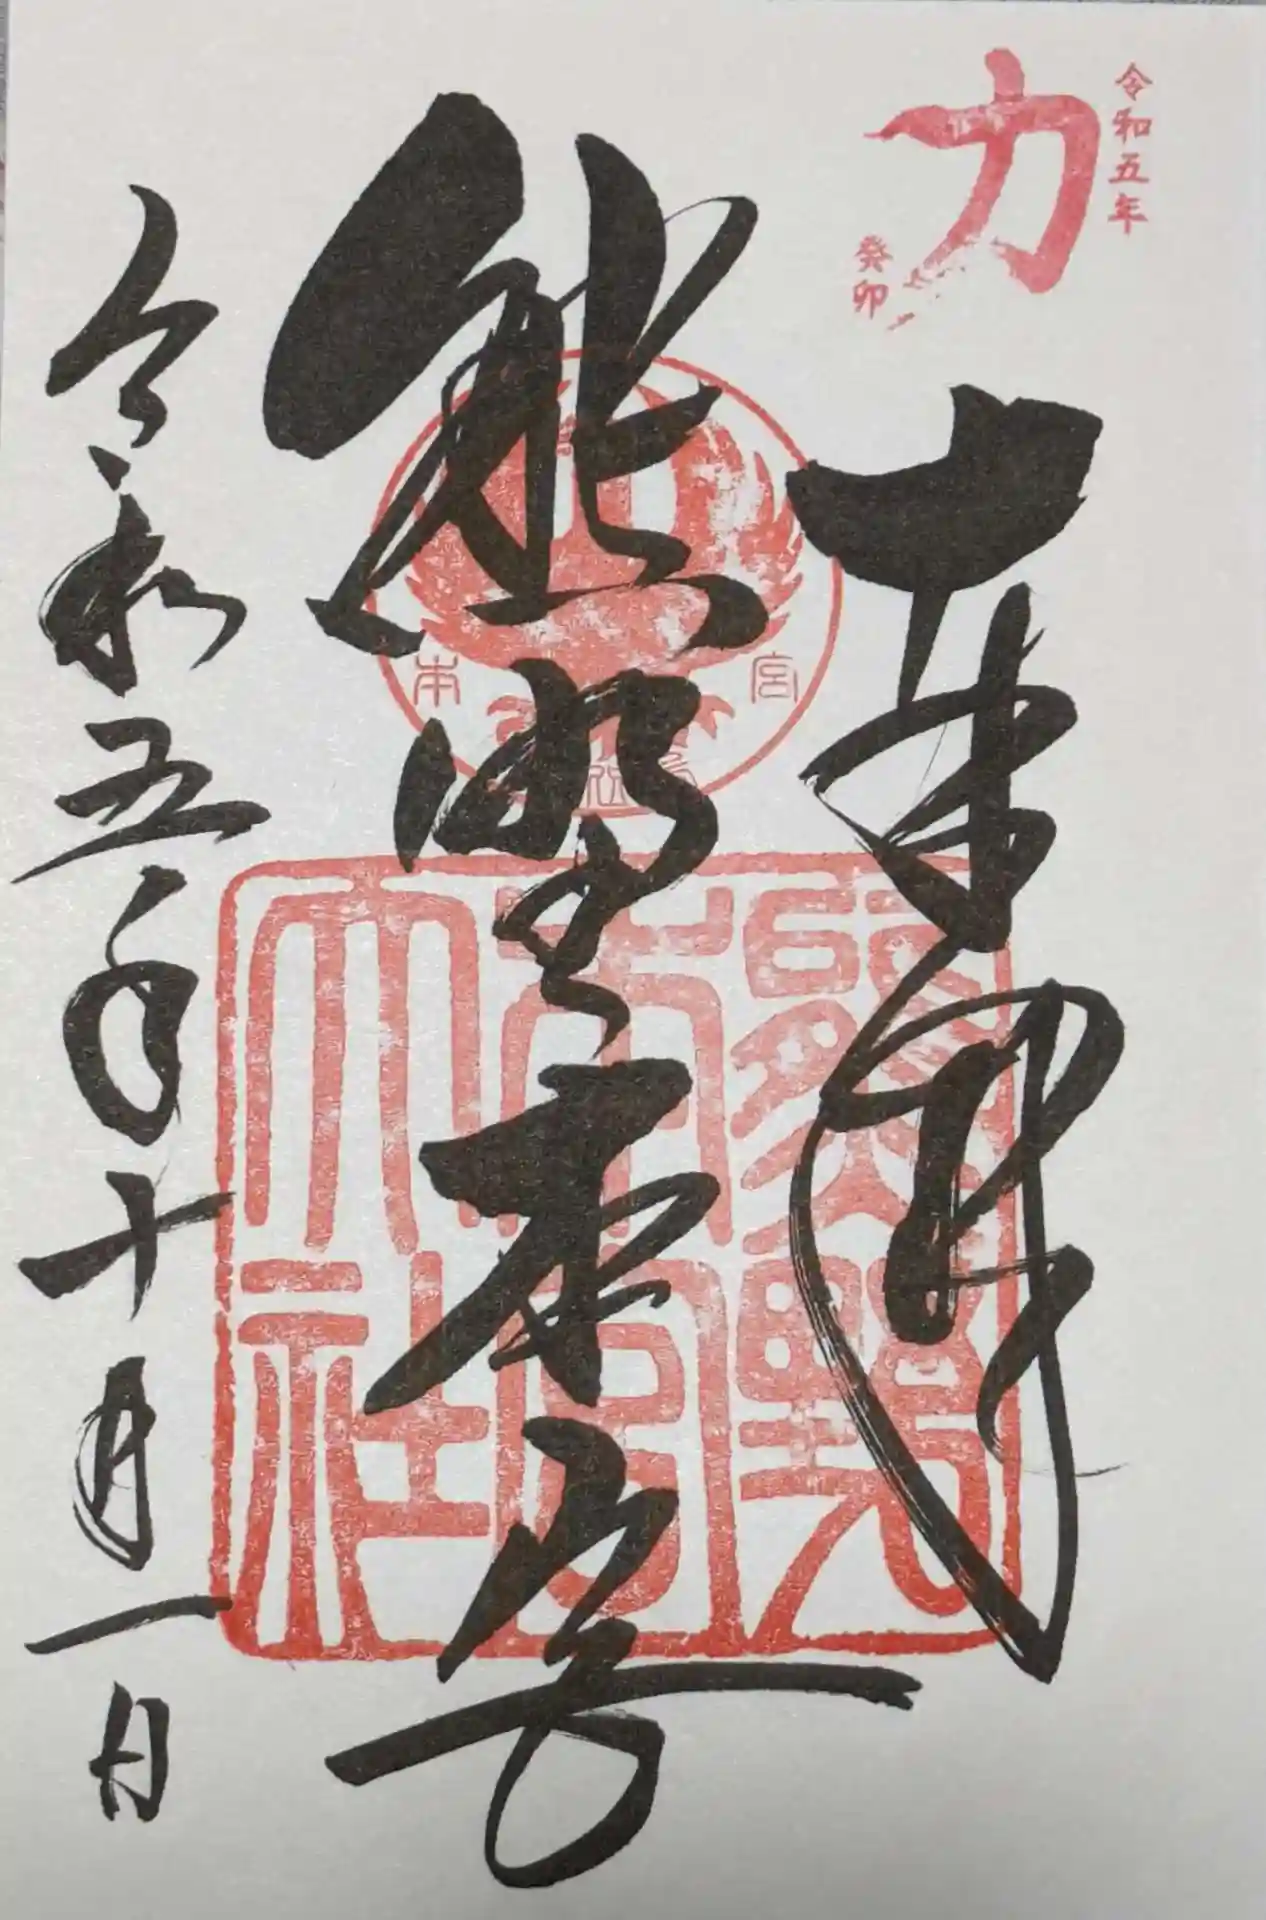 令和五年
力
癸卯
奉拝
熊野本宮
令和五年十月一日
本 宮
熊野
本宮
大社